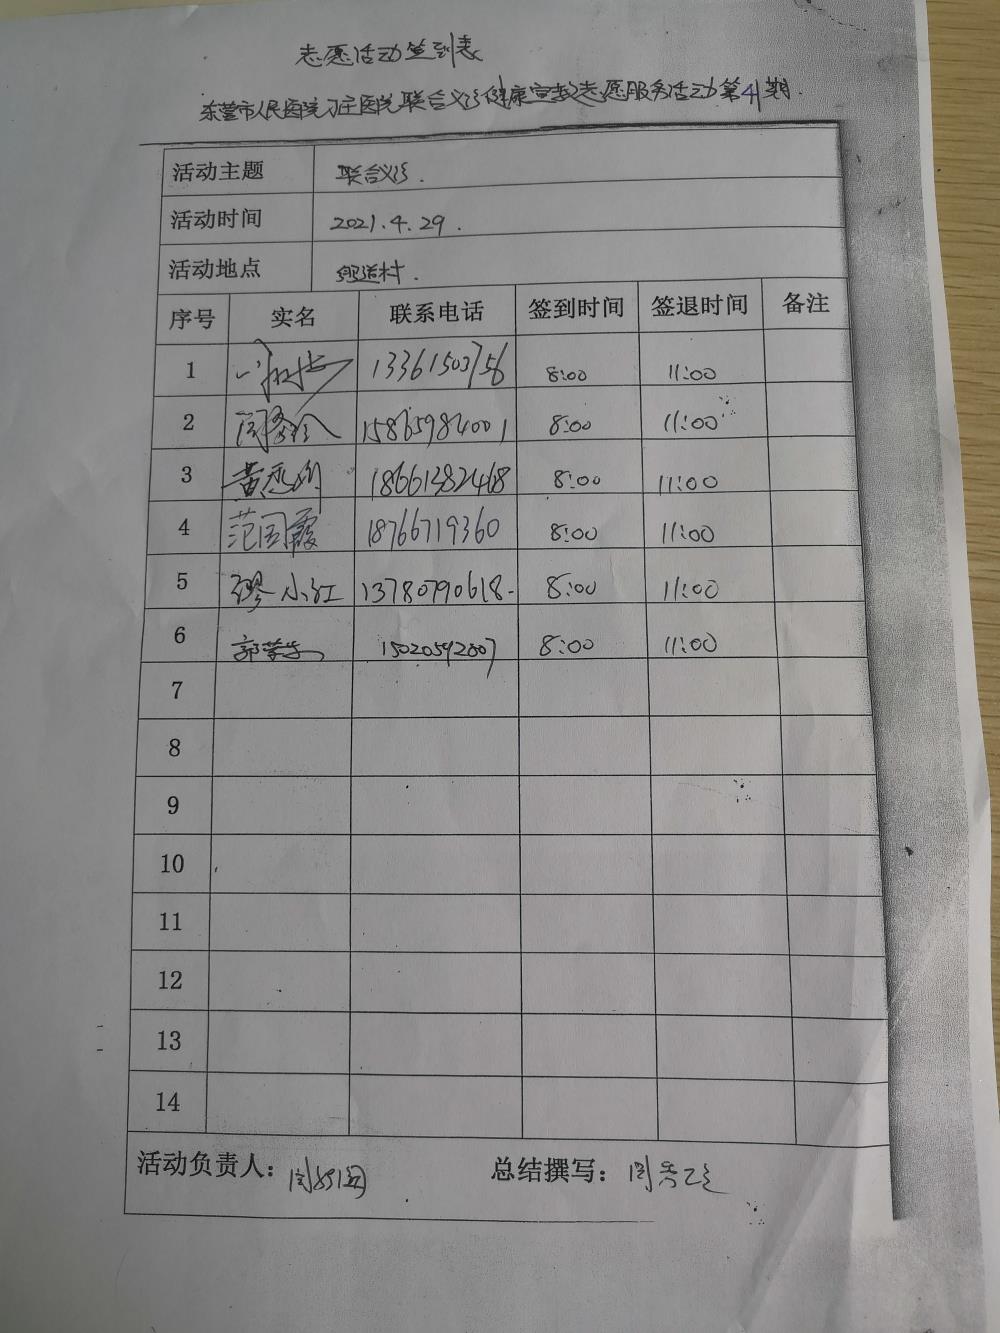 志愿活动签到表
东营市人民医院 医院联合义诊健康宣教志愿服务活动第41期.
活动主题 联合义诊.
活动时间 2021.4.29.
活动地点 村.
序号 实名 联系电话 签到时间 签退时间 备注
1 13361503756 8:00 11:00
2 15865984001 8:00 11:00
3 黄 18661382468 8:00 11:00
4 范国霞 18766719360 8:00 11:00
5 缪小红 13780790618. 8:00 11:00
6 郭 15020592807 8:00 11:00
7
8
9
10
11
12
13
14
活动负责人： 总结撰写：